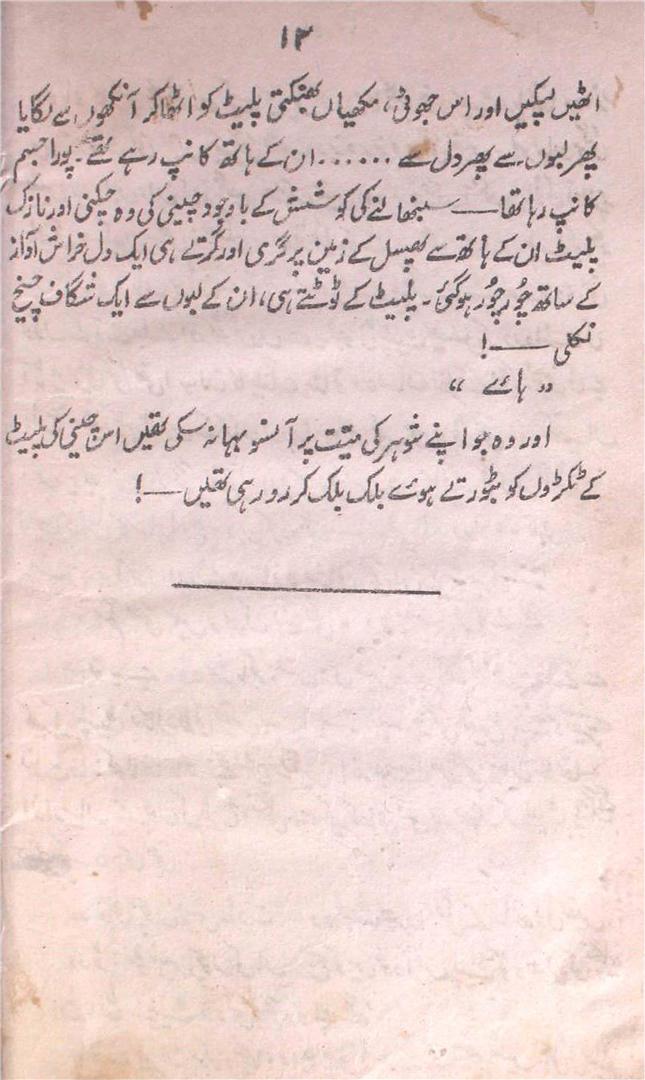 ۱۳
اٹھیں لپکیں اور اس جھوٹی، مکھیاں بھنکتی پلیٹ کو اٹھا کر آنکھوں سے لگایا
پھر لبوں سے پھر دل سے ...... ان کے ہاتھ کانپ رہے تھے۔ پورا جسم
کانپ رہا تھا — سنبھالنے کی کوشش کے باوجود چینی کی وہ چکنی اور نازک
پلیٹ ان کے ہاتھ سے پھسل کے زمین پر گری اور گرتے ہی ایک دل خراش آواز
کے ساتھ چُور چُور ہو گئی۔ پلیٹ کے ٹوٹتے ہی، ان کے لبوں سے ایک شگاف چیخ
نکلی —!
" ہائے "
اور وہ جو اپنے شوہر کی میّت پر آنسو بہا نہ سکی تھیں اس چینی کی پلیٹ
کے ٹکڑوں کو بٹورتے ہوئے بلک بلک کر رو رہی تھیں —!